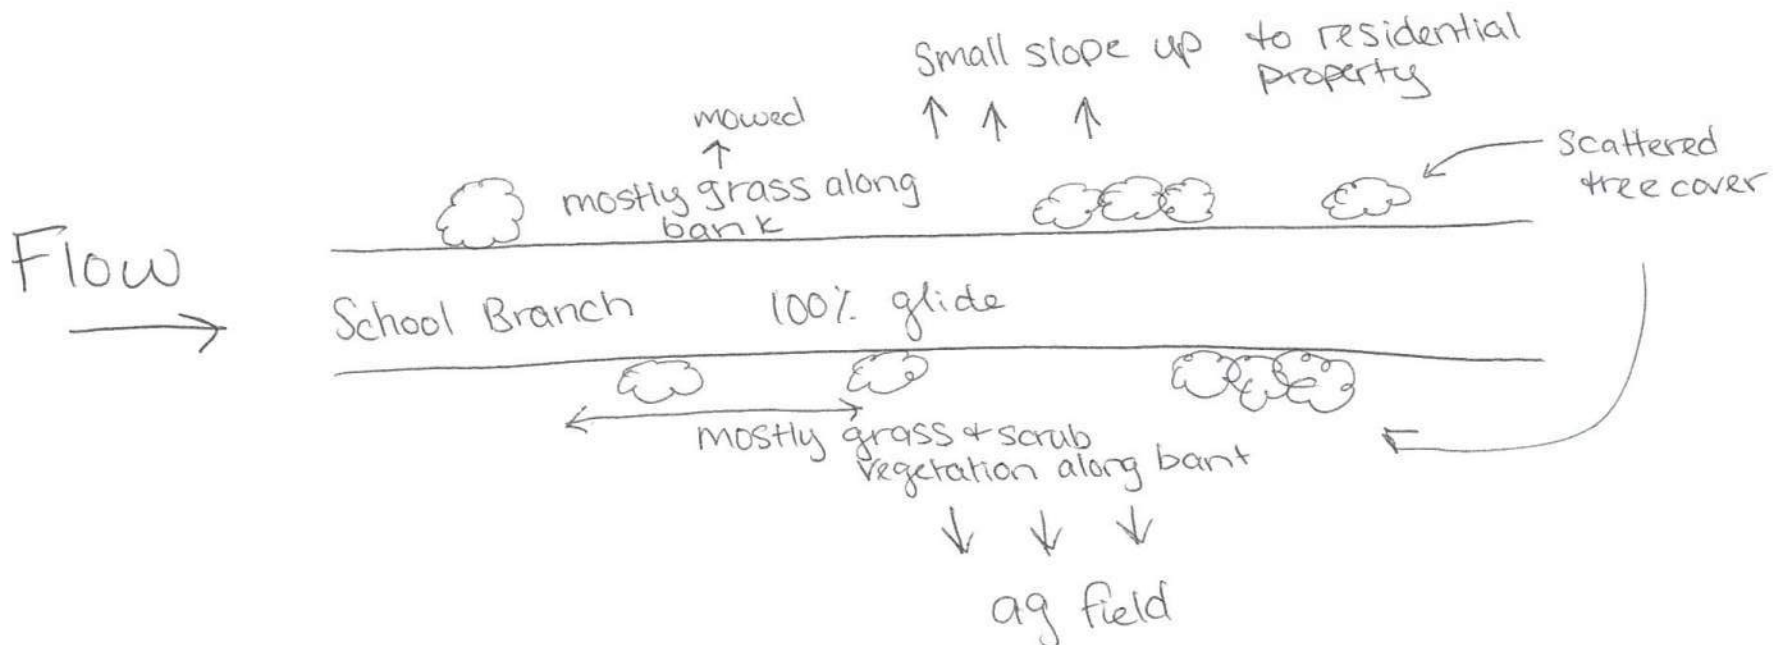 Small slope up to residential
property
mowed
Scattered
tree cover
mostly grass along
bank
Flow
School Branch 100% glide
mostly grass + scrub
vegetation along bank
ag field